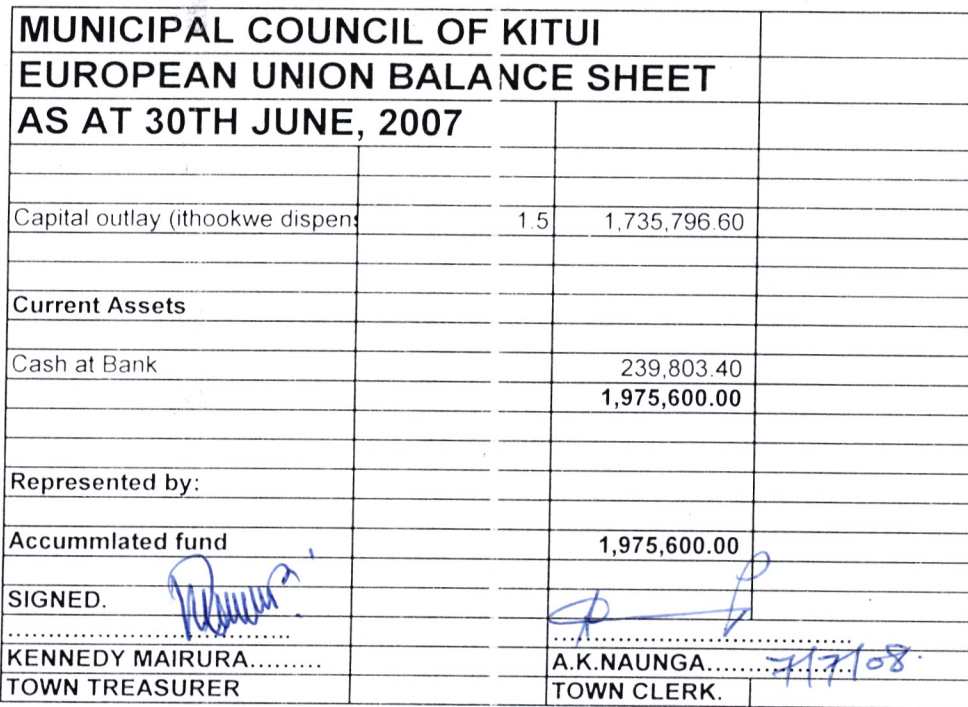 MUNICIPAL COUNCIL OF KITUI
EUROPEAN UNION BALANCE SHEET
AS AT 30TH JUNE, 2007
Capital outlay (ithookwe dispens 1.5 1,735,796.60
Current Assets
Cash at Bank 239,803.40
1,975,600.00
Represented by:
Accummlated fund 1,975,600.00
SIGNED.
.................................... ......................................
KENNEDY MAIRURA......... A.K.NAUNGA................... 7/7/08.
TOWN TREASURER TOWN CLERK.